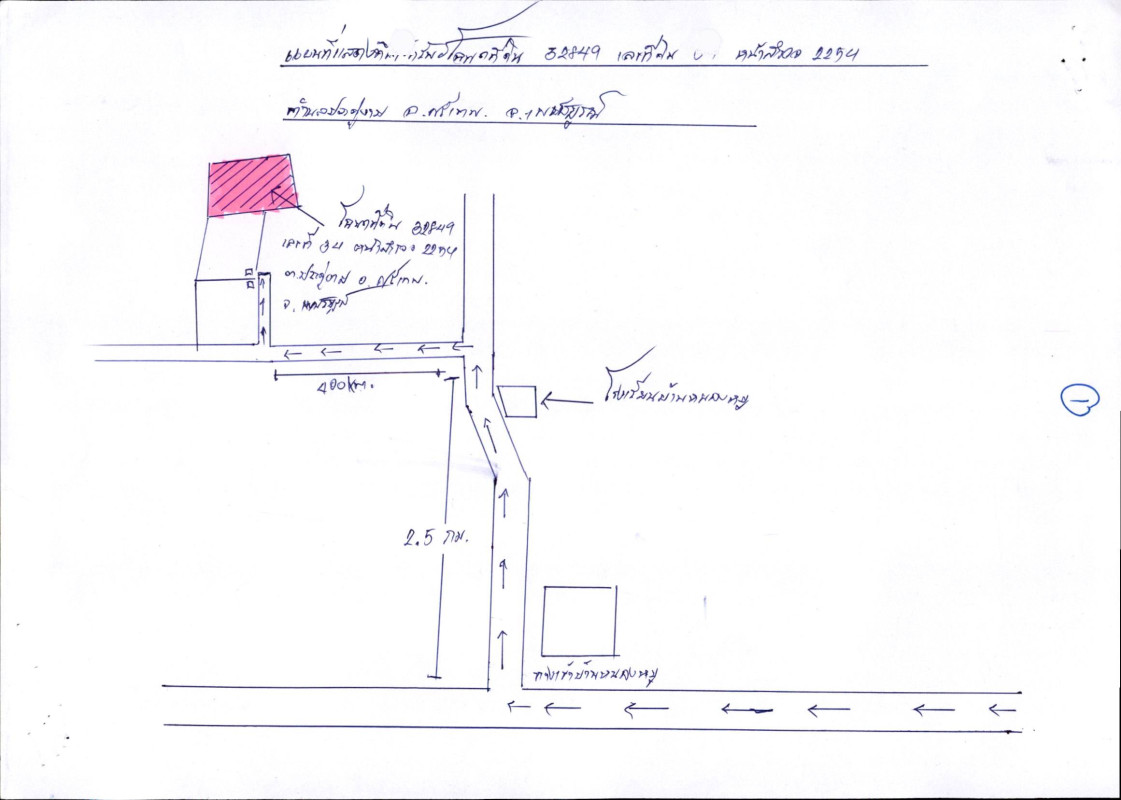 แผนที่แสดงที่ โฉนดที่ดิน 32849 เลขที่ดิน หน้าสำรวจ 2254
ตำบลประดู่งาม อ.ศรีเทพ. จ.เพชรบูรณ์
โฉนดที่ดิน 32849
เลขที่ 34 หน้าสำรวจ 2254
ต.ประดู่งาม อ.ศรีเทพ.
จ. เพชรบูรณ์
400 km.
โรงเรียนบ้านหนองหมู
2.5 กม.
ทางเข้าบ้านหนองหมู
1